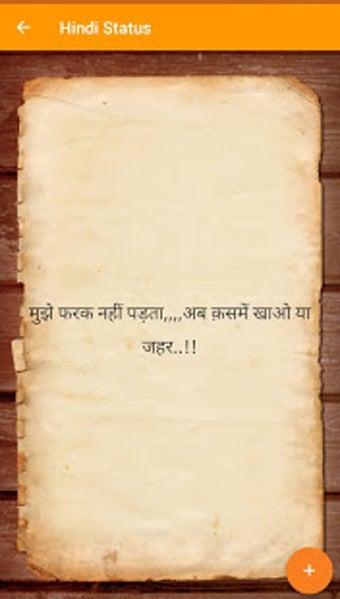 Hindi Status
मुझे फरक नहीं पड़ता,,,,अब क़समें खाओ या
जहर..!!